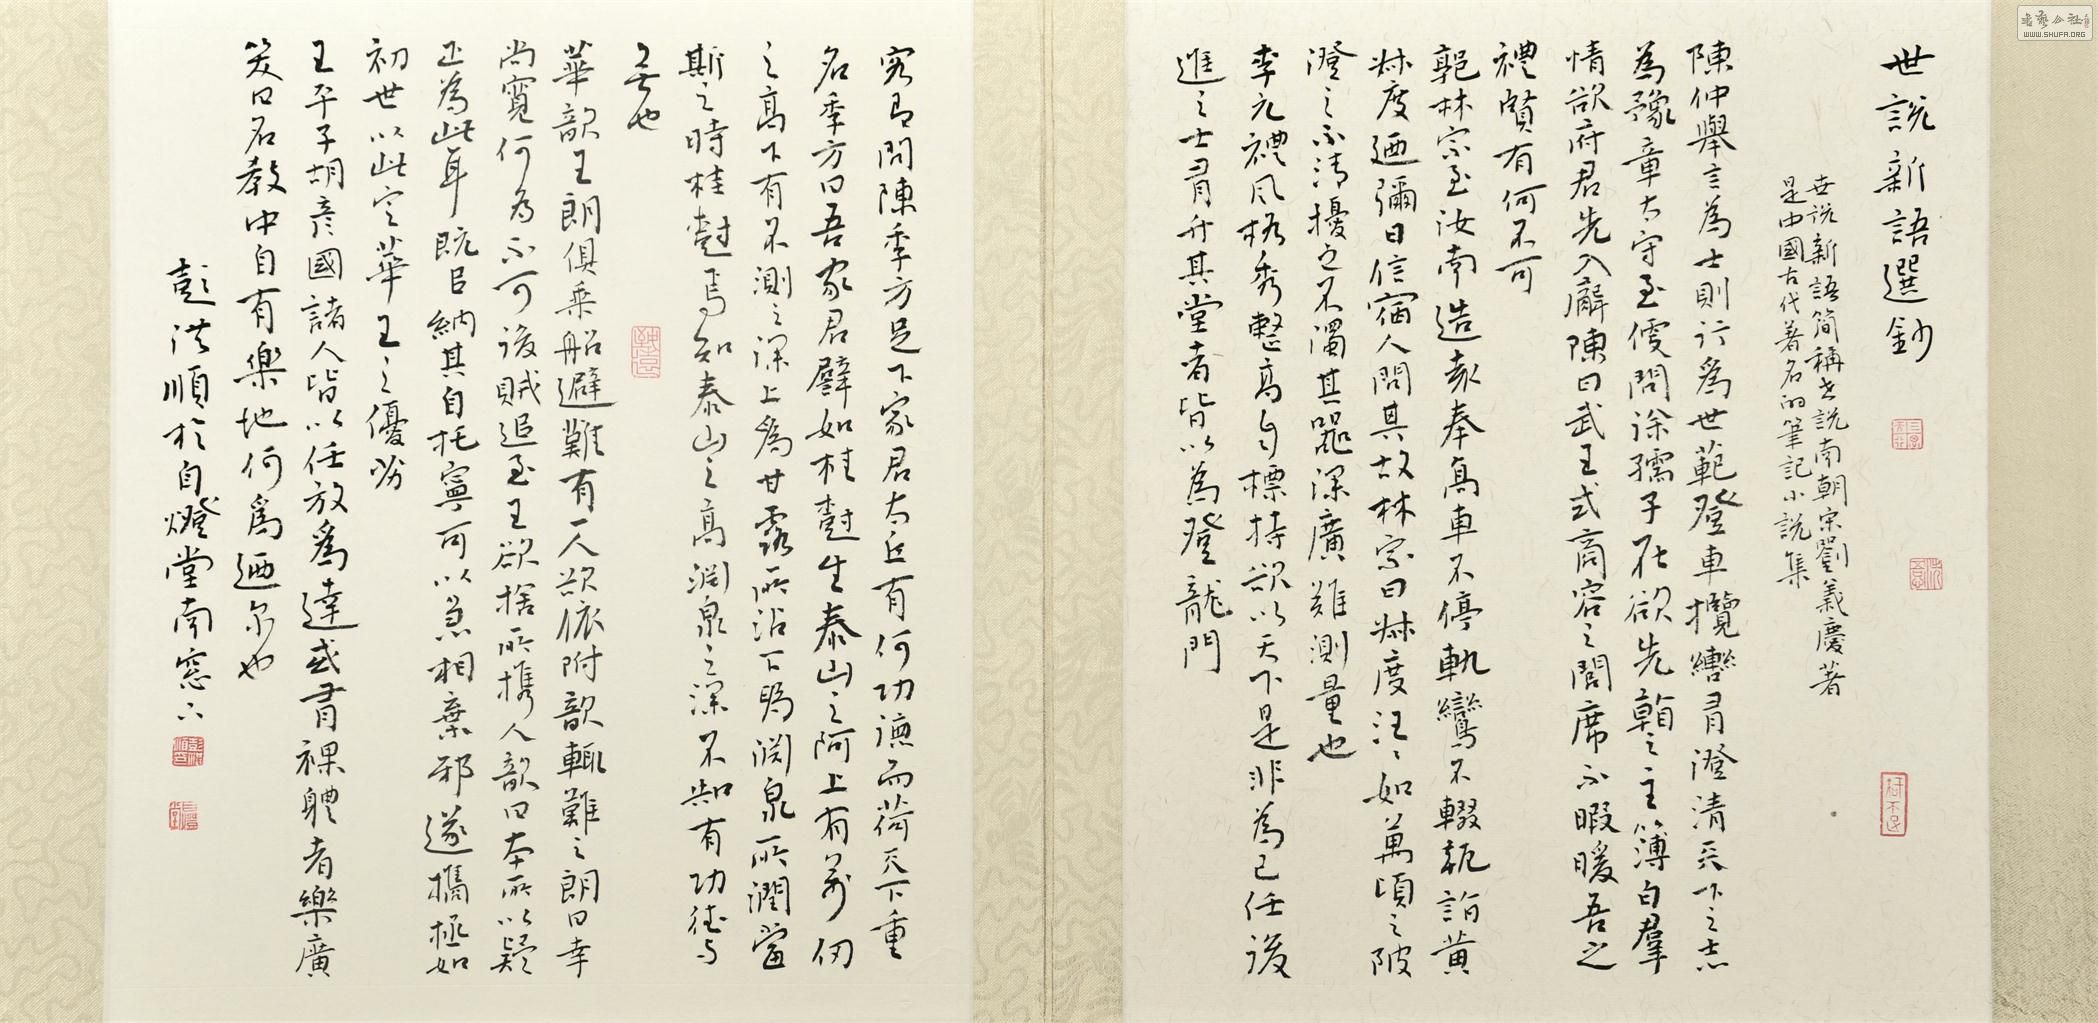 世說新語選鈔
世说新語简稱世説南朝宋劉義慶著
是中國古代著名的筆記小説集
陳仲舉言為士則行為世範登車攬轡有澄清天下之志
為豫章太守至便問徐孺子所在欲先𩔰之主簿白羣
情欲府君先入廨陳曰武王式商容之閭席不暇暖吾之
禮賢有何不可
郭林宗至汝南造袁奉高車不停軌鸞不輟軛詣黄
叔度廼彌日信宿人問其故林宗曰叔度汪汪如萬頃之陂
澄之不清擾之不濁其器深廣難測量也
李元禮風格秀整高自標持欲以天下是非為己任後
進之士有升其堂者皆以為登龍門
客有問陳季方足下家君太丘有何功德而荷天下重
名季方曰吾家君譬如桂樹生泰山之阿上有萬仞
之高下有不測之深上為甘露所沾下為淵泉所潤當
斯之時桂樹焉知泰山之高淵泉之深不知有功徳与
无也
華歆王朗俱乘船避難有一人欲依附歆輒難之朗曰幸
尚寬何為不可後賊追至王欲捨所携人歆曰本所以疑
正為此耳既已納其自托寧可以急相棄邪遂攜拯如
初世以此定華王之優劣
王平子胡彦國諸人皆以任放為達或有裸體者樂廣
笑曰名教中自有樂地何為廼尔也
彭洪順於自燈堂南窓下
WWW.SHUFA.ORG